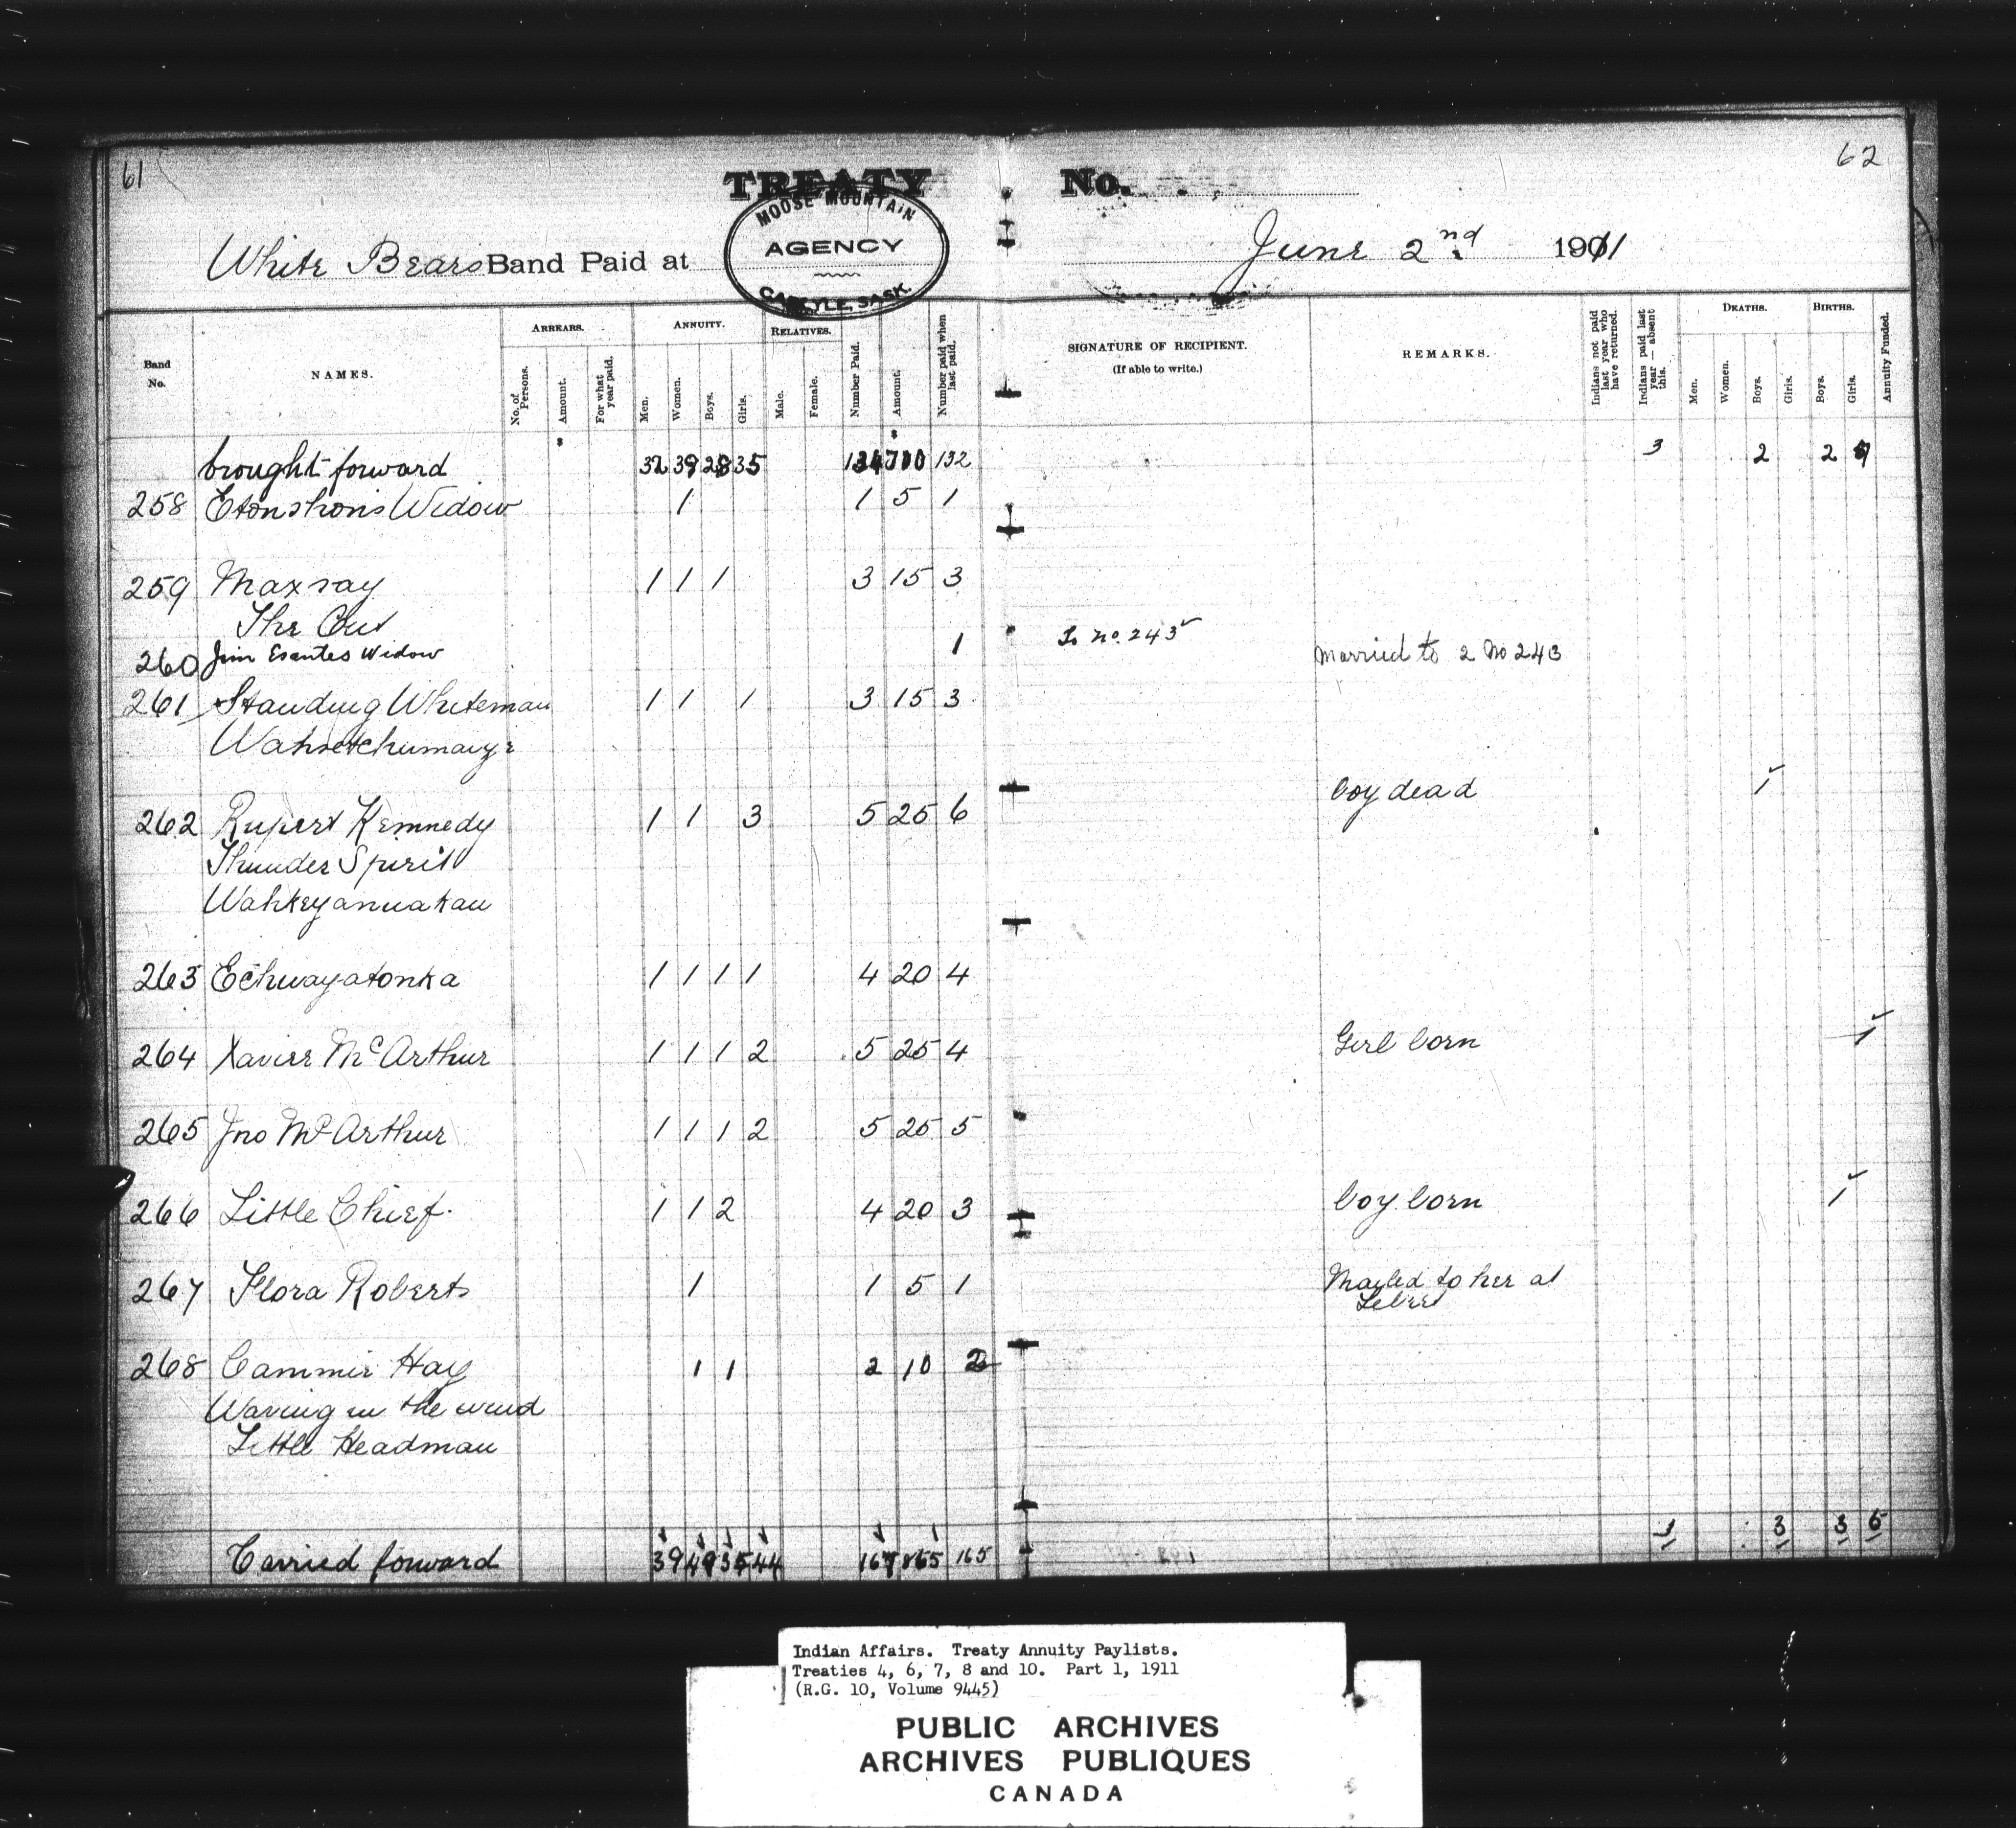 61
62
TREATY No.
MOOSE MOUNTAIN
AGENCY
CARLYLE, SASK.
White Bears Band Paid at June 2nd 1911
Band No. NAMES. ARREARS. No. of Persons. Amount. For what year paid. ANNUITY. Men. Women. Boys. Girls. RELATIVES. Male. Female. Number Paid. Amount. Number paid when last paid. SIGNATURE OF RECIPIENT. (If able to write.) REMARKS. Indians not paid last year who have returned. Indians paid last year — absent this. DEATHS. Men. Women. Boys. Girls. BIRTHS. Boys. Girls. Annuity Funded.
brought forward 32 39 28 35 134 700 132 3 2 2
258 Widow 1 1 5 1
259 Maxsay 1 1 1 3 15 3
The Cut
260 Jim Esantes Widow 1 To No. 243 Married to 2 No 243
261 Standing Whiteman 1 1 1 3 15 3
262 Rupert Kennedy 1 1 3 5 25 6 boy dead 1
Thunder Spirit
Wahkeyanuakan
263 Echwayatonka 1 1 1 1 4 20 4
264 Xavier McArthur 1 1 1 2 5 25 4 Girl born 1
265 Jno McArthur 1 1 1 2 5 25 5
266 Little Chief. 1 1 2 4 20 3 boy born 1
267 Flora Roberts 1 1 5 1 Mailed to her at
Lebret
268 Cammie Hay 1 1 2 10 2
Waving in the wind
Little Headman
Carried forward 39 49 35 44 167 865 165 3 3 3 5
Indian Affairs. Treaty Annuity Paylists.
Treaties 4, 6, 7, 8 and 10. Part 1, 1911
(R.G. 10, Volume 9445)
PUBLIC ARCHIVES
ARCHIVES PUBLIQUES
CANADA